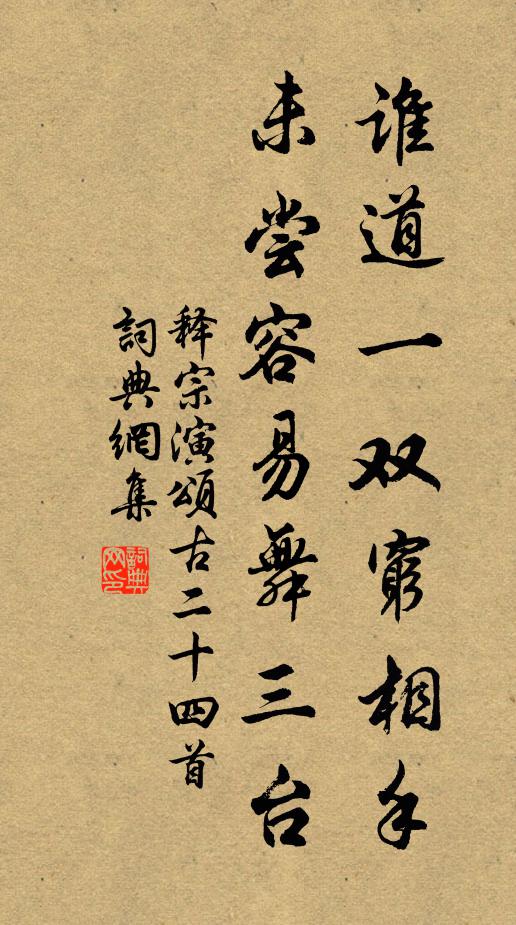 谁道一双穷相手
未尝容易舞三台
释宗演颂古二十四首
詞典網集
詞典网印